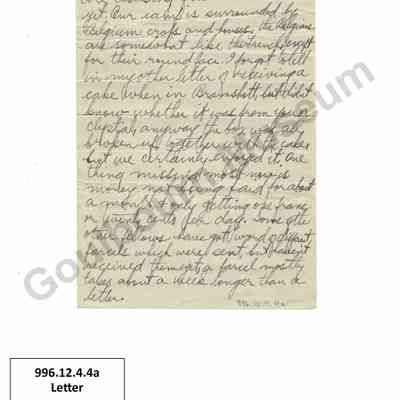 yet. Our camp is surrounded by
Belgium crops and houses. The Belgiums
are somewhat like the French, except
for their round face. I forgot to tell
in my other letter of receiving a
cake when in Bramshott, but didn't
know whether it was from you or
Chrystal, anyway the box was all
broken up together with the cake
but we certainly enjoyed it. One
thing missing most now is
money not being paid for about
a month & only getting one franc
or twenty cents per day. Some of the
other fellows have got word of different
parcels which were sent, but haven't
received them yet, a parcel mostly
takes about a week longer than a
letter.
996.12.4.4a
Gounlburn Museum
996.12.4.4a
Letter